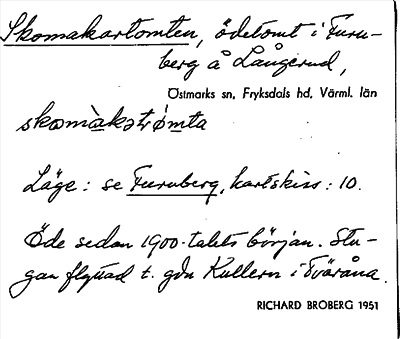 Skomakartomten, ödetomt i Furu-
berg å Långerud,
Östmarks sn, Fryksdals hd, Värml. län
skomàkətrómta
Läge: se Furuberg, kartskiss: 10.
Öde sedan 1900-talets början. Stu-
gan flyttad t. gdn Kullern i Tväråna.
RICHARD BROBERG 1951